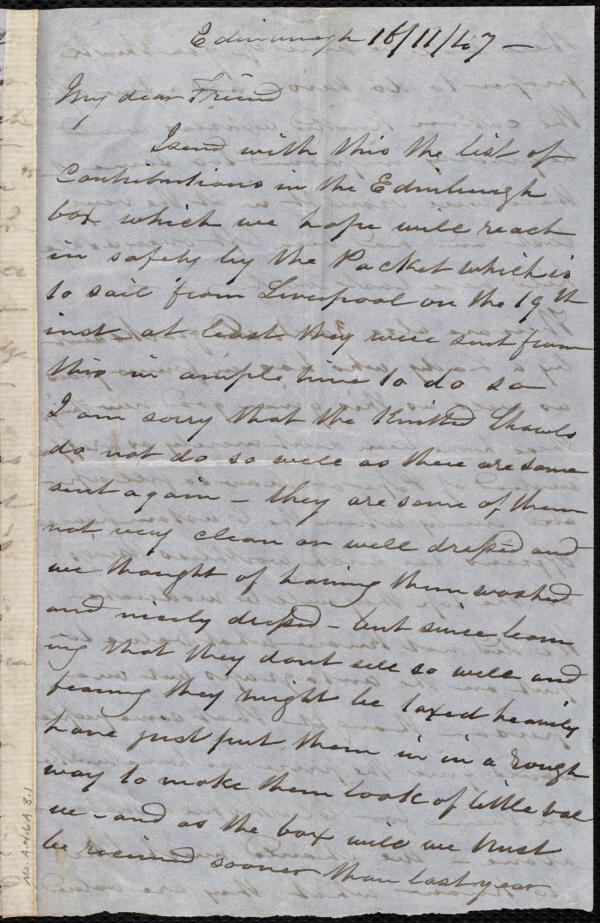 Edinburgh 16/11/47 –
My dear Friend
I send with this the list of
Contributions in the Edinburgh
box which we hope will reach
in safety by the Packet which is
to sail from Liverpool on the 19th
inst at least they were sent from
this in ample time to do so
I am sorry that the Knitted Shawls
do not do so well as there are some
sent again – they are some of them
not very clean or well dressed and
we thought of having them washed
and nicely dressed – but since learn
ing that they dont sell so well and
fearing they might be taxed heavily
have just put them in in a rough
way to make them look of little val
ue – and as the box will we trust
be received sooner than last year
Ms.A.9.2